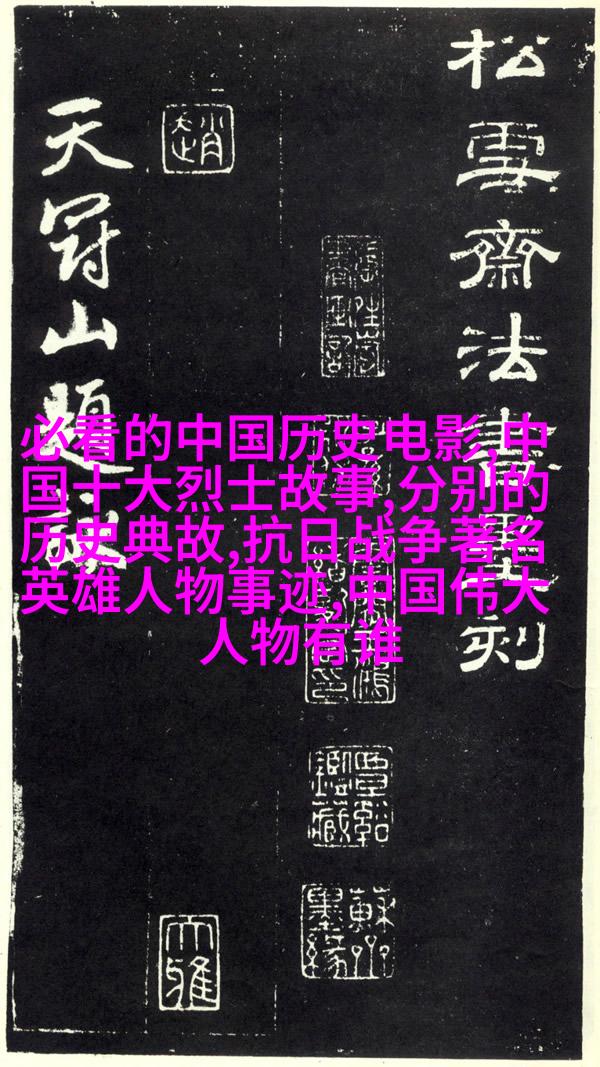 松雪齋法書墨刻
覃谿鑑藏
趙
大雅
天冠山題
必看的中国历史电影,中
国十大烈士故事,分别的
历史典故,抗日战争著名
英雄人物事迹,中国伟大
人物有谁